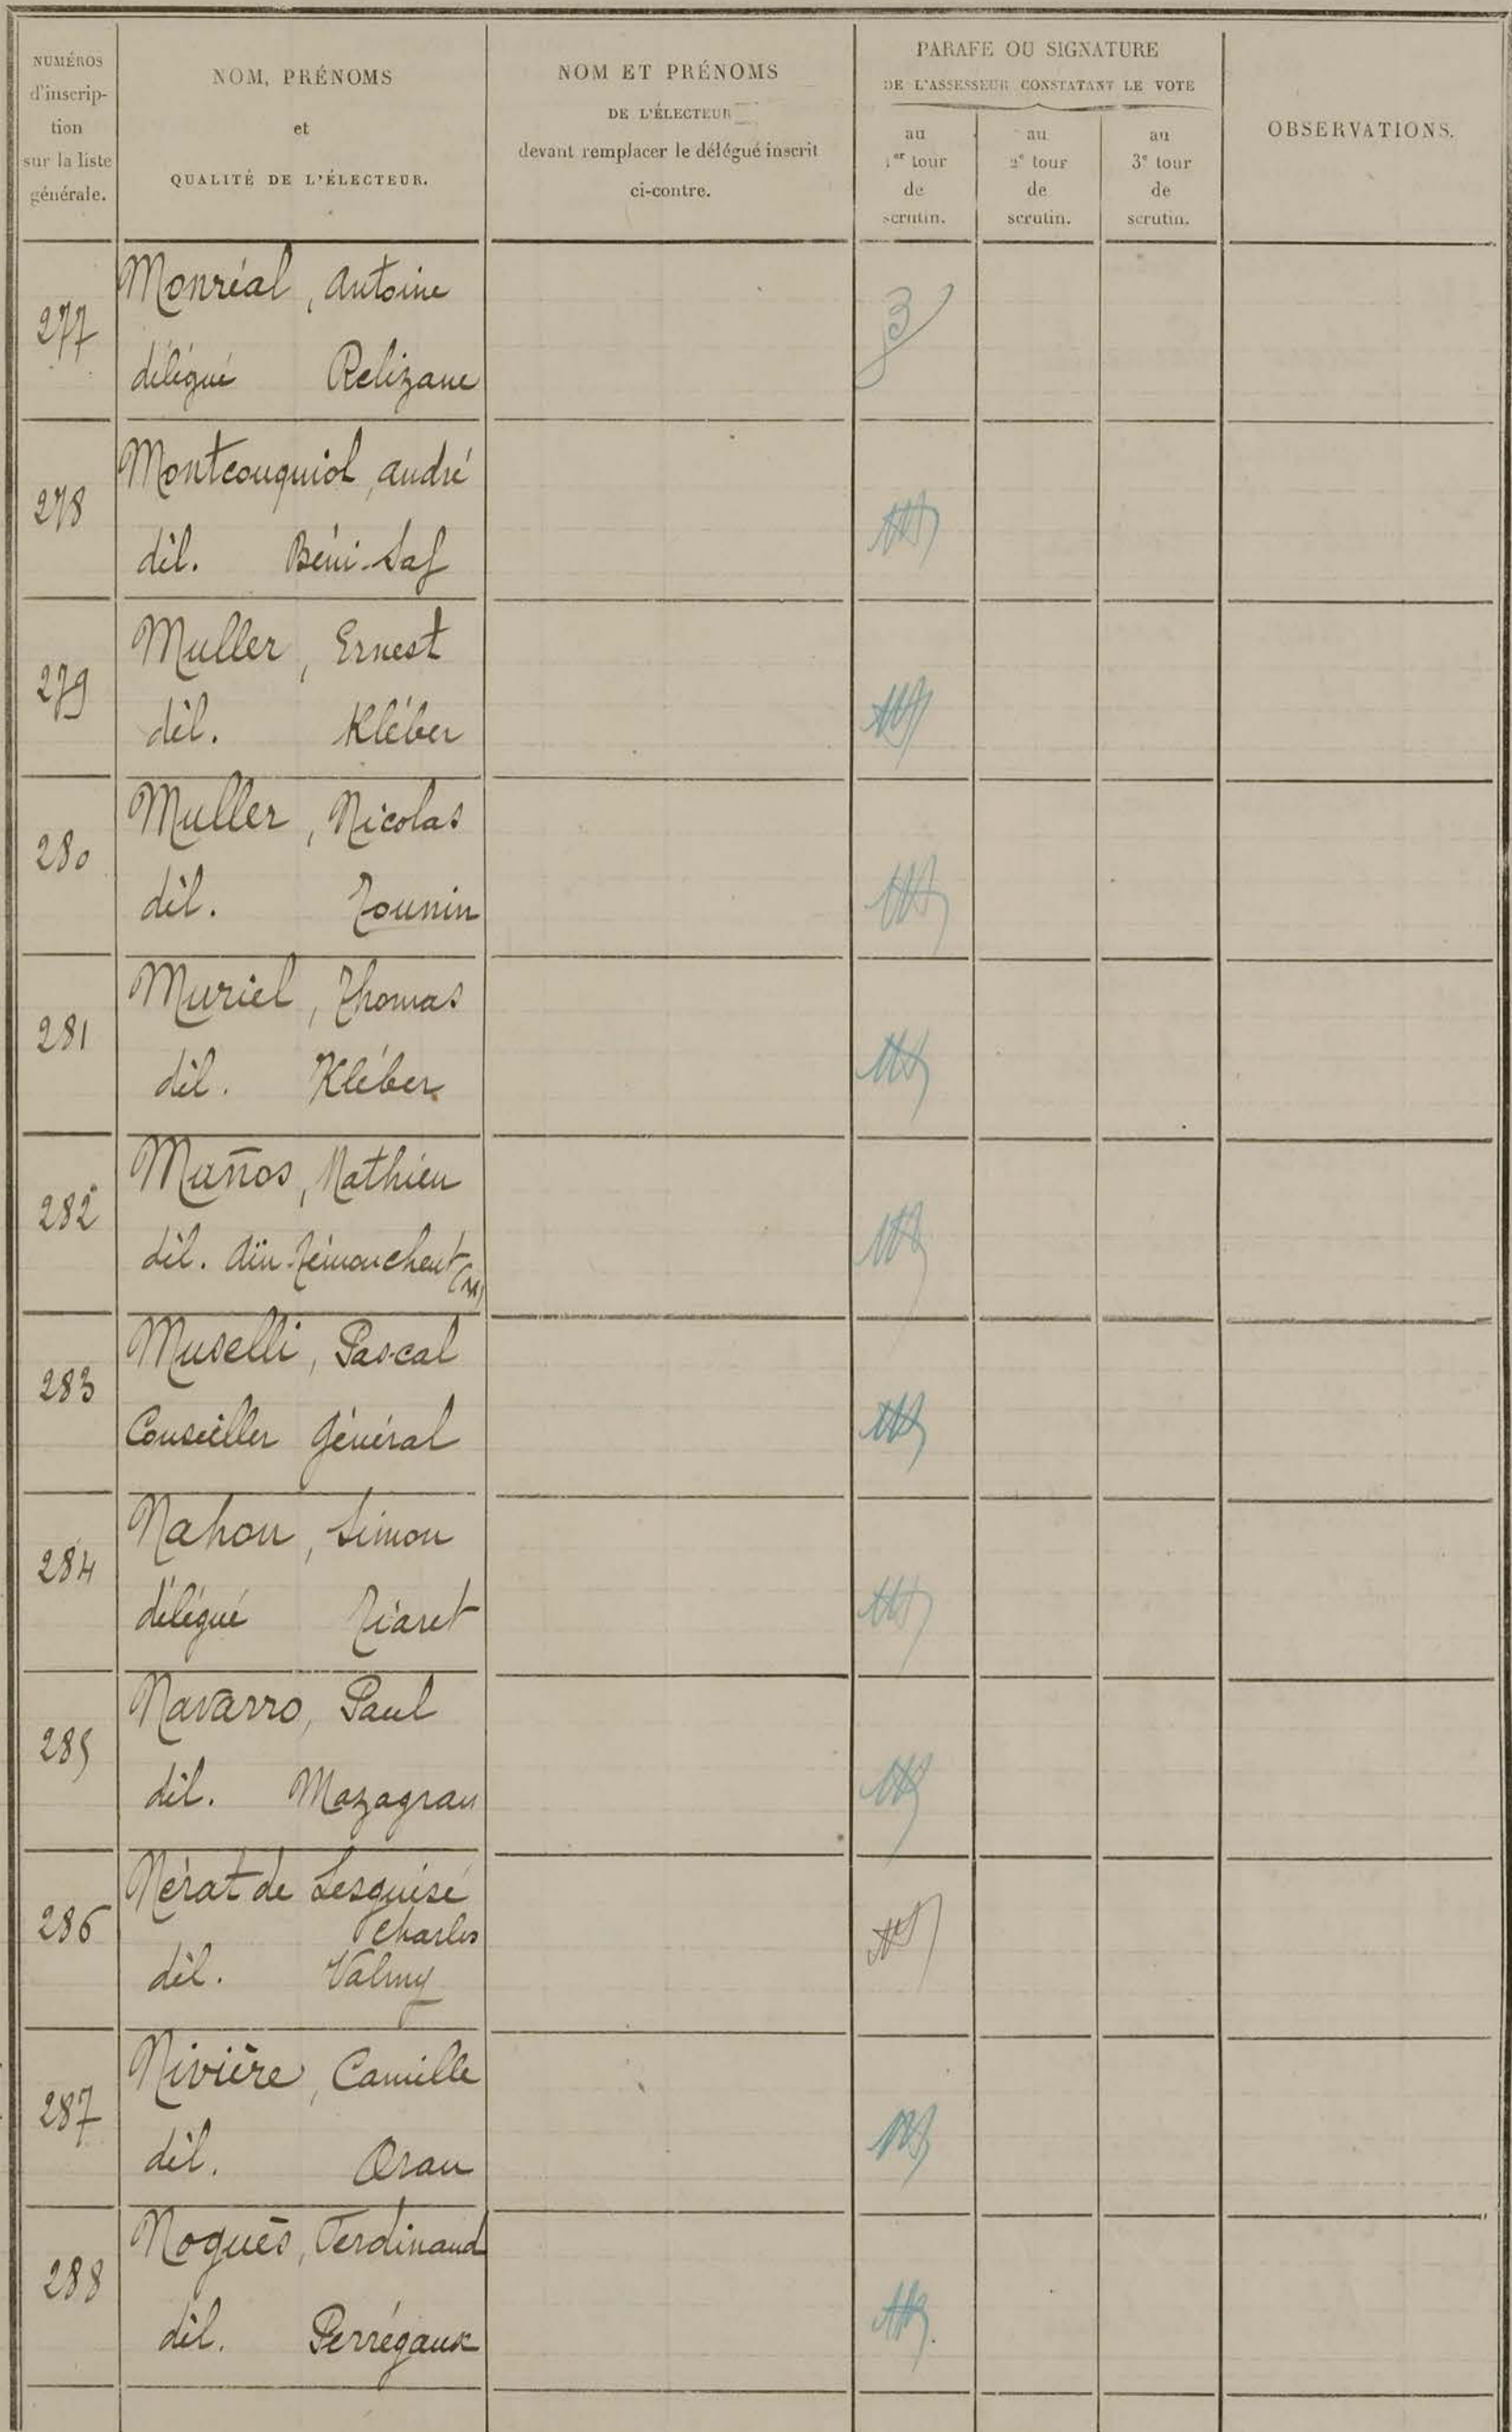 NUMÉROS
d'inscrip-
tion
sur la liste
générale.
NOM, PRÉNOMS
et
QUALITÉ DE L'ÉLECTEUR.
NOM ET PRÉNOMS
DE L'ÉLECTEUR
devant remplacer le délégué inscrit
ci-contre.
PARAFE OU SIGNATURE
DE L'ASSESSEUR CONSTATANT LE VOTE
au
1er tour
de
scrutin.
au
2e tour
de
scrutin.
au
3e tour
de
scrutin.
OBSERVATIONS.
277
Monréal, Antoine
délégué Relizane
278
Montcouquiol, André
dél. Béni-Saf
279
Muller, Ernest
dél. Kléber
280
Muller, Nicolas
dél. Tounin
281
Muriel, Thomas
dél. Kléber
282
Muños, Mathieu
dél. Aïn-Témouchent (M)
283
Muselli, Pascal
Conseiller Général
284
Nahon, Simon
délégué Tiaret
285
Navarro, Paul
dél. Mazagran
286
Nérat de Lesguisé
Charles
dél. Valmy
287
Nivière, Camille
dél. Oran
288
Noguès, Ferdinand
dél. Perrégaux